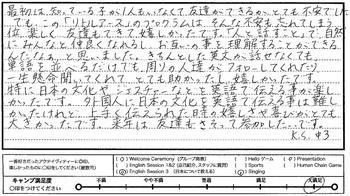 最初は、知っている子が1人もいなくて友達ができるか、とても不安でした。
でも、この「リトルアース」のプログラムは、そんな不安も忘れてしまう
位、楽しく友達もできて嬉しかったです。「人と話すこと」で、自然
にみんなと仲良くなれるし、お互いの事を理解することができる
んだなぁ、と思いました。きちんとした英文が話せなくても
単語を並べるだけでも周りの人達がフォローしてくれたり
一生懸命聞いてくれて、とても助かったし嬉しかったです。
特に日本の文化やジェスチャーなどを英語で伝える事が楽し
かったです。外国人に日本の文化を英語で伝える事は難し
かったけれど、上手く伝えられた時の嬉しさや喜びがとても
大きかったです。来年は友達もさそって参加したいです。
K.S. 中3
一番好きだったアクティブティーに○印、
Welcome Ceremony (グループ発表)
Hello ゲーム
Presentation
English Session 1&2
Sports
Human Chain Game
English Session 3 (日本について教える)
Singing
キャンプ満足度
○をつけてください
不満
やや不満
普通
満足
大満足